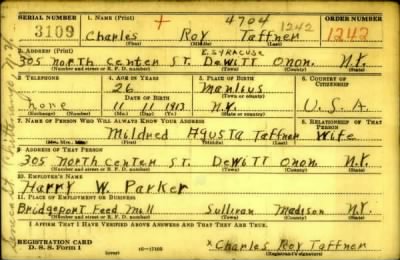 SERIAL NUMBER 1. NAME (Print) ORDER NUMBER
3109 Charles Roy Taffner 4704 1242 1242
(First) (Middle) (Last)
E. SYRACUSE
2. ADDRESS (Print)
305 North Center ST. DeWitt Onon. N.Y.
(Number and street or R. F. D. number) (Town) (County) (State)
3. TELEPHONE 4. AGE IN YEARS 5. PLACE OF BIRTH 6. COUNTRY OF CITIZENSHIP
26 Manlius
DATE OF BIRTH (Town or county)
none 11 11 1913 N.Y. U.S.A.
(Exchange) (Number) (Mo.) (Day) (Yr.) (State or country)
7. NAME OF PERSON WHO WILL ALWAYS KNOW YOUR ADDRESS 8. RELATIONSHIP OF THAT PERSON
Mildred Agusta Taffner Wife
(Mr., Mrs., Miss) (First) (Middle) (Last)
9. ADDRESS OF THAT PERSON
305 North Center ST. DeWitt Onon. N.Y.
(Number and street or R. F. D. number) (Town) (County) (State)
10. EMPLOYER'S NAME
Harry W. Parker
11. PLACE OF EMPLOYMENT OR BUSINESS
Bridgeport Feed Mill Sullivan Madison N.Y.
(Number and street or R. F. D. number) (Town) (County) (State)
I AFFIRM THAT I HAVE VERIFIED ABOVE ANSWERS AND THAT THEY ARE TRUE.
REGISTRATION CARD x Charles Roy Taffner
D. S. S. Form 1 (over) 16—17105 (Registrant's signature)